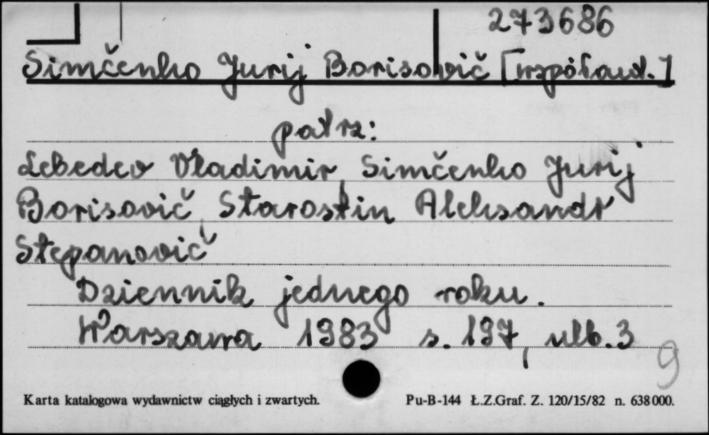 273686
Simčenko Jurij Borisovič [współaut.]
patrz:
Lebedev Vladimir, Simčenko Jurij
Borisovič, Starostin Aleksandr
Stepanovič
Dziennik jednego roku.
Warszawa 1983 s. 197, nlb. 3
9
Karta katalogowa wydawnictw ciągłych i zwartych. Pu-B-144 Ł.Z.Graf. Z. 120/15/82 n. 638000.